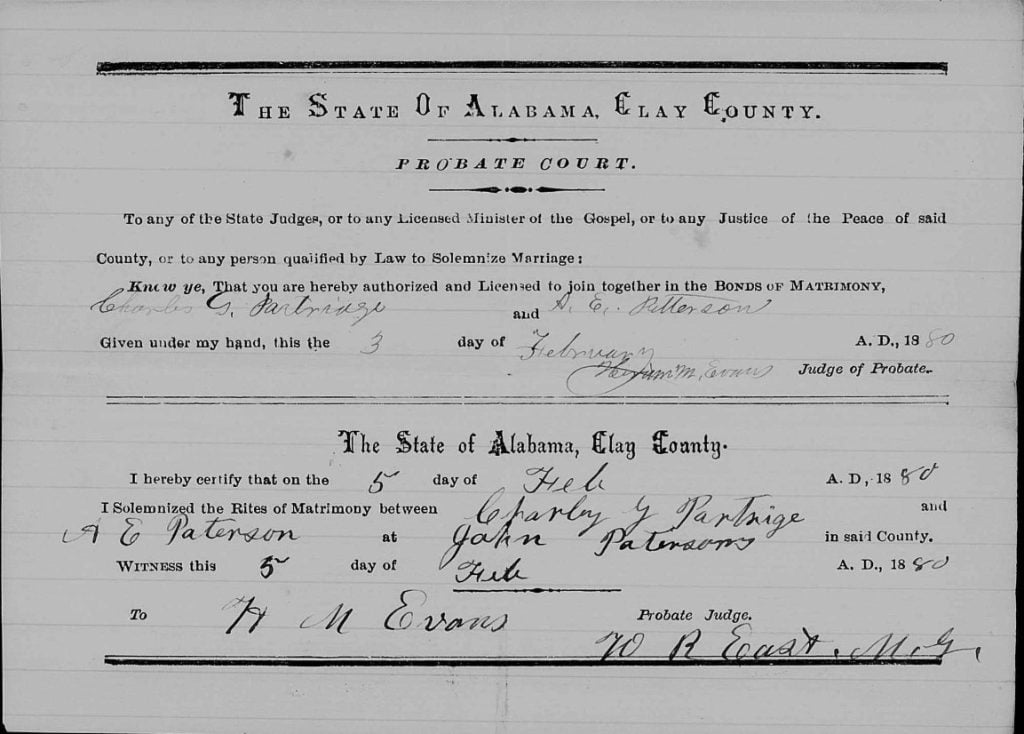 THE STATE OF ALABAMA, CLAY COUNTY.
PROBATE COURT.
To any of the State Judges, or to any Licensed Minister of the Gospel, or to any Justice of the Peace of said
County, or to any person qualified by Law to Solemnize Marriage:
Know ye, That you are hereby authorized and Licensed to join together in the BONDS OF MATRIMONY,
Charles G. Partridge and A. E. Patterson
Given under my hand, this the 3 day of February A. D., 1880
M. Evans Judge of Probate.
The State of Alabama, Clay County.
I hereby certify that on the 5 day of Feb A. D, 1880
I Solemnized the Rites of Matrimony between Charley G Partrige and
A E Paterson at John Patersons in said County.
WITNESS this 5 day of Feb A. D., 1880
To H M Evans Probate Judge.
W R East, M. G.